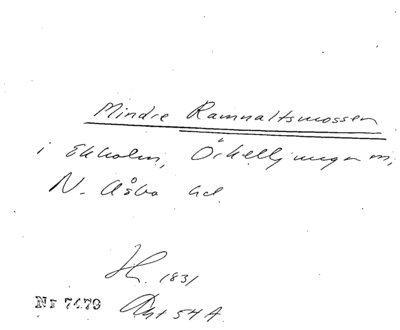 Mindre Ramnaltsmossen
i Ekholm, Örkelljunga sn,
N. Åsbo hd.
1831
Nr 7479 54 A